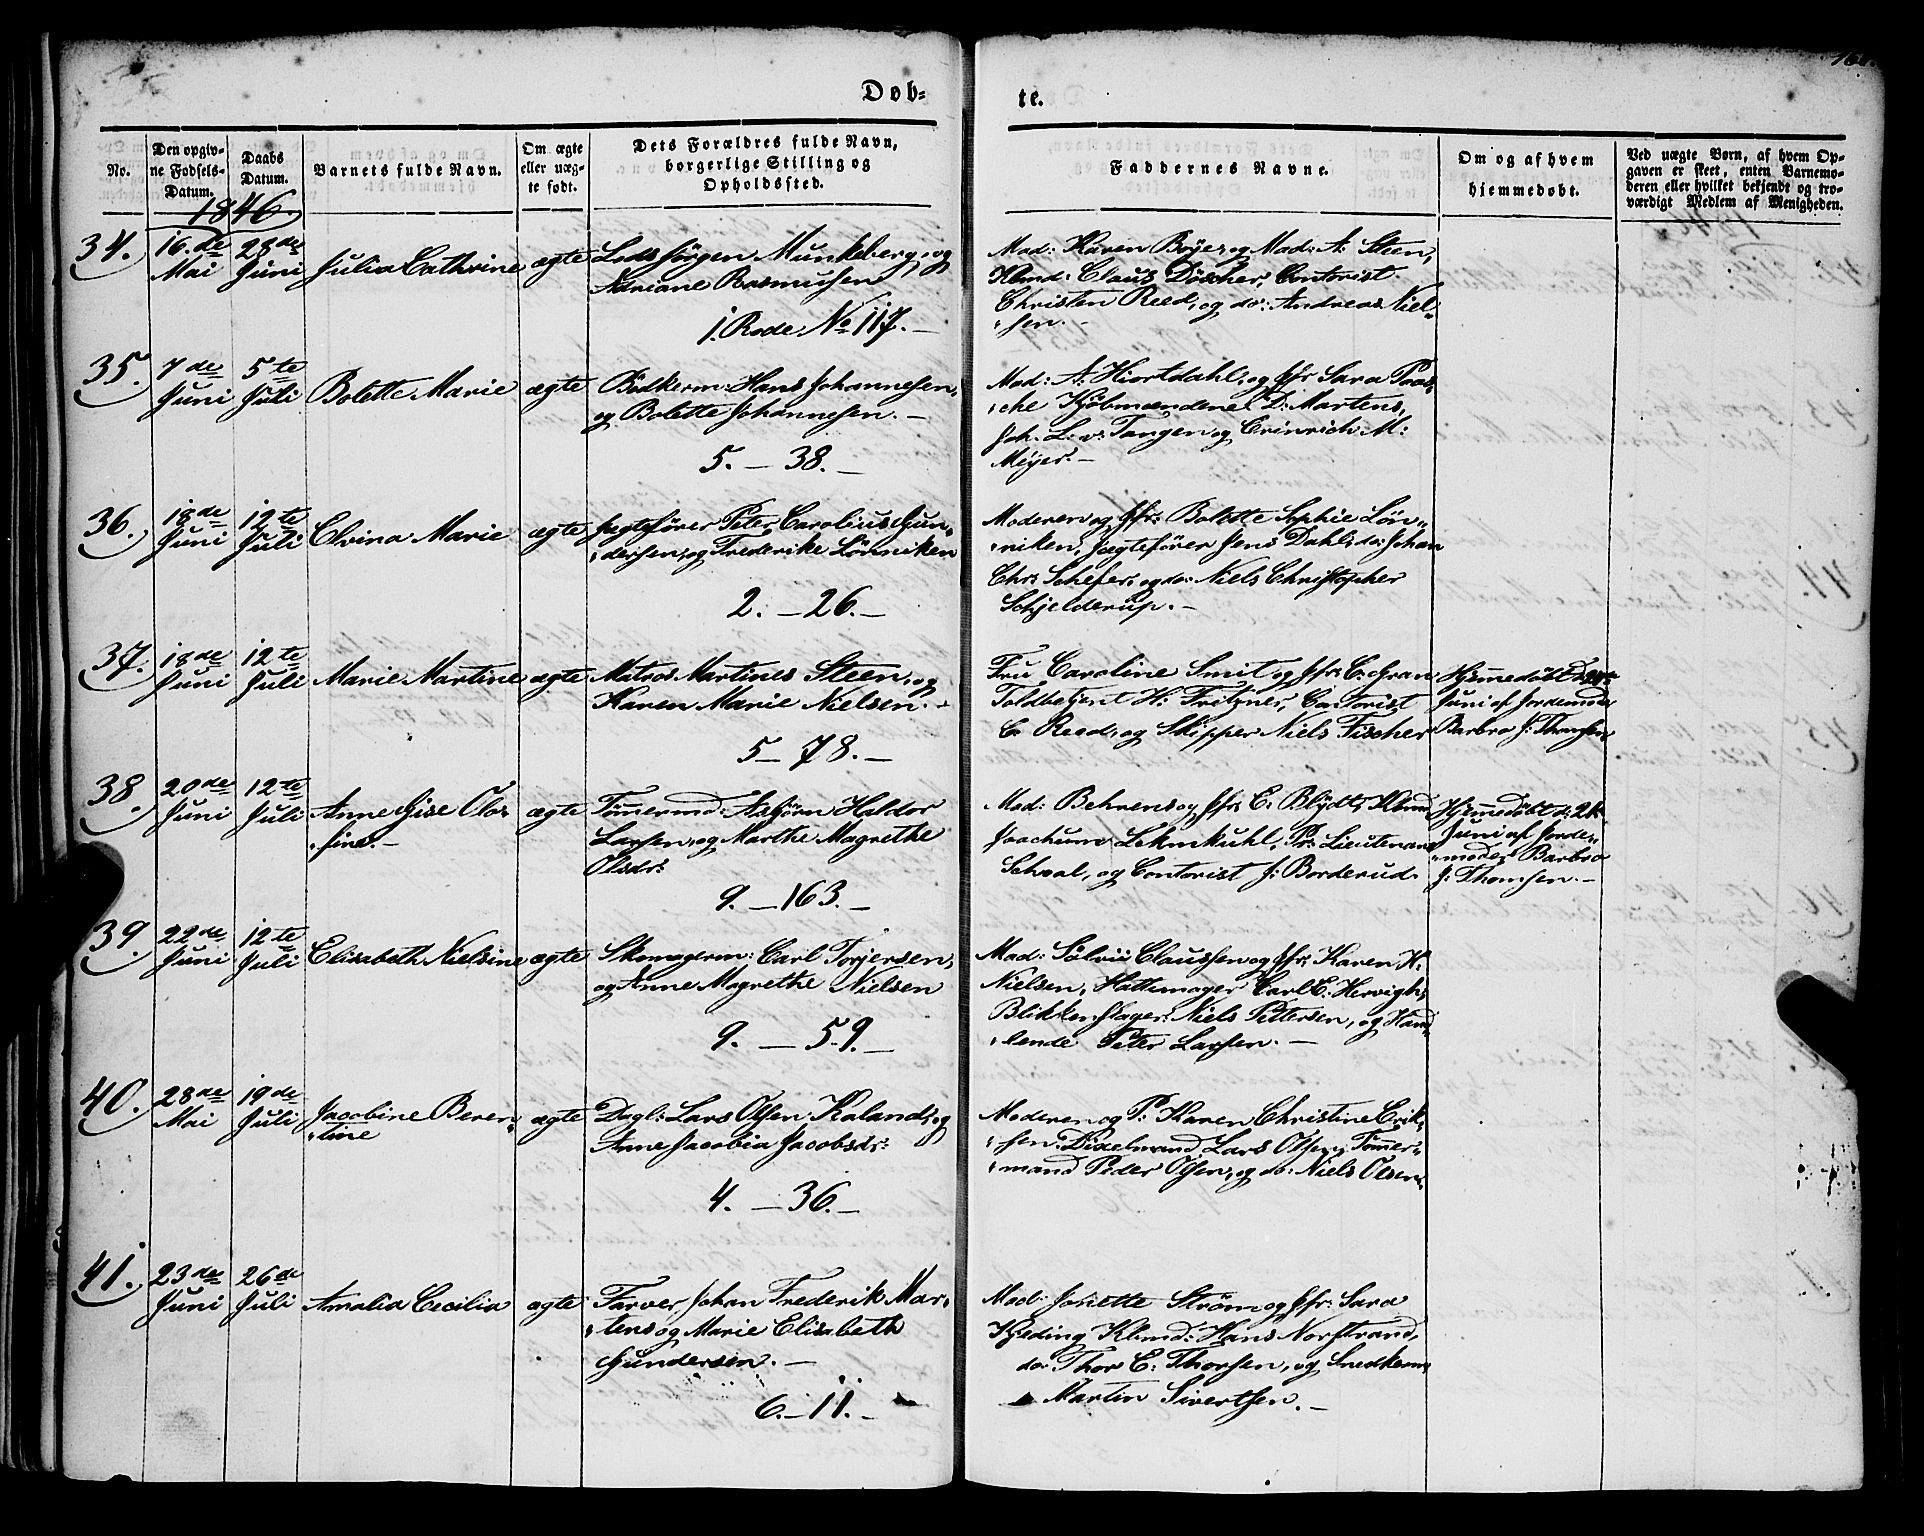 Døb-
te.
No.
Den opgiv-
ne Fødsels-
Datum.
Daabs
Datum.
Barnets fulde Navn.
Om ægte
eller uæg-
te født.
Dets Forældres fulde Navn,
borgerlige Stilling og
Opholdssted.
Faddernes Navne.
Om og af hvem
hjemmedøbt.
Ved uægte Børn, af hvem Op-
gaven er skeet, enten Barnemo-
deren eller hvilket bekjendt og tro-
værdigt Medlem af Menigheden.
1846.
34. 16.de 28de
Mai Juni Julia Cathrine ægte Lods Jørgen Munkeberg, og
Adriane Rasmussen
1. Rode No 117.-
Mad: Karen Böyer og Mad: A: Steen,
Kbmd: Claus Döscher, Contorist
Christen Reed, og do: Andreas Niel-
sen.-
35. 7de 5te
Juni Juli Bolette Marie ægte Bödkerm: Hans Johannesen,
og Bolette Johannesen.-
5.-38.-
Mad: A: Hiortdahl, og Jfr Sara Paas-
che Kjöbmændene D: Martens,
Joh. L: v: Tangen og M:
Meyer.-
36. 18de 12te
Juni Juli Elvina Marie ægte Jægtefører Peter Carolius Gun-
dersen, og Frederike Lönniken
2.-26.-
Moderen og Jfr: Bolette Sophie Lön-
niken, Jægtefører Jens Dahl, do: Johan
Chr: Schefer, og do: Niels Christopher
Schjelderup.-
37. 18de 12te
Juni Juli Marie Martine ægte Matros Martines Steen, og
Karen Marie Nielsen.-
5-78.-
Fru Caroline Smit og Jfr: C: Gran
Toldbetjent H: Fritzner, Contorist
C: Reed, og Skipper Niels Fischer
Hjemmedöbt d:
Juni af Jordemoder
Barbro J: Thomsen.
38. 20de 12te
Juni Juli Anne Gise Olo-
sine.-
ægte Tömmermd: Asbjörn Haldor
Larsen, og Marthe Magrethe
Olsdr:
9.-163.-
Mad: Behrens og Jfr: C: Blÿdt, Kbmd
Joachum Lekmkuhl, Pr: Lieutenant
Schval, og Contorist J: Borderud.
Hjemmedöbt d:
Juni af Jorde-
moder Barbro
J: Thomsen.-
39. 22de 12te
Juni Juli Elisabeth Nielsine ægte Skomagerm: Carl Torjersen,
og Anne Magrethe Nielsen
9.-59.-
Mad: Sölvie Claussen og Jfr: Karen H:
Nielsen, Hattemager Carl C: Hervigh,
Blikkenslager: Niels Pettersen, og Hand-
lende Peter Larsen.-
40. 28de 19de
Mai Juli Jacobine Beren-
tine
ægte Dagl: Lars Olsen Kaland, og
Anne Jacobia Jacobsdr:
4.-36.-
Moderen og P: Karen Christine Erik-
sen. Dixelmand Lars Olsen, Tömmer-
mand Peder Olsen, og do: Niels Olsen.
41. 23de 26de
Juni Juli Amalia Cecilia ægte Farver, Johan Frederik Mar-
tens og Marie Elisabeth
Gundersen.-
6.-11.-
Mad: Jonette Ström og Jfr: Sara
Kjeding Kbmd: Hans Norstrand,
do: Thor C: Thorsen, og Snedkerm:
Martin Sivertsen.-